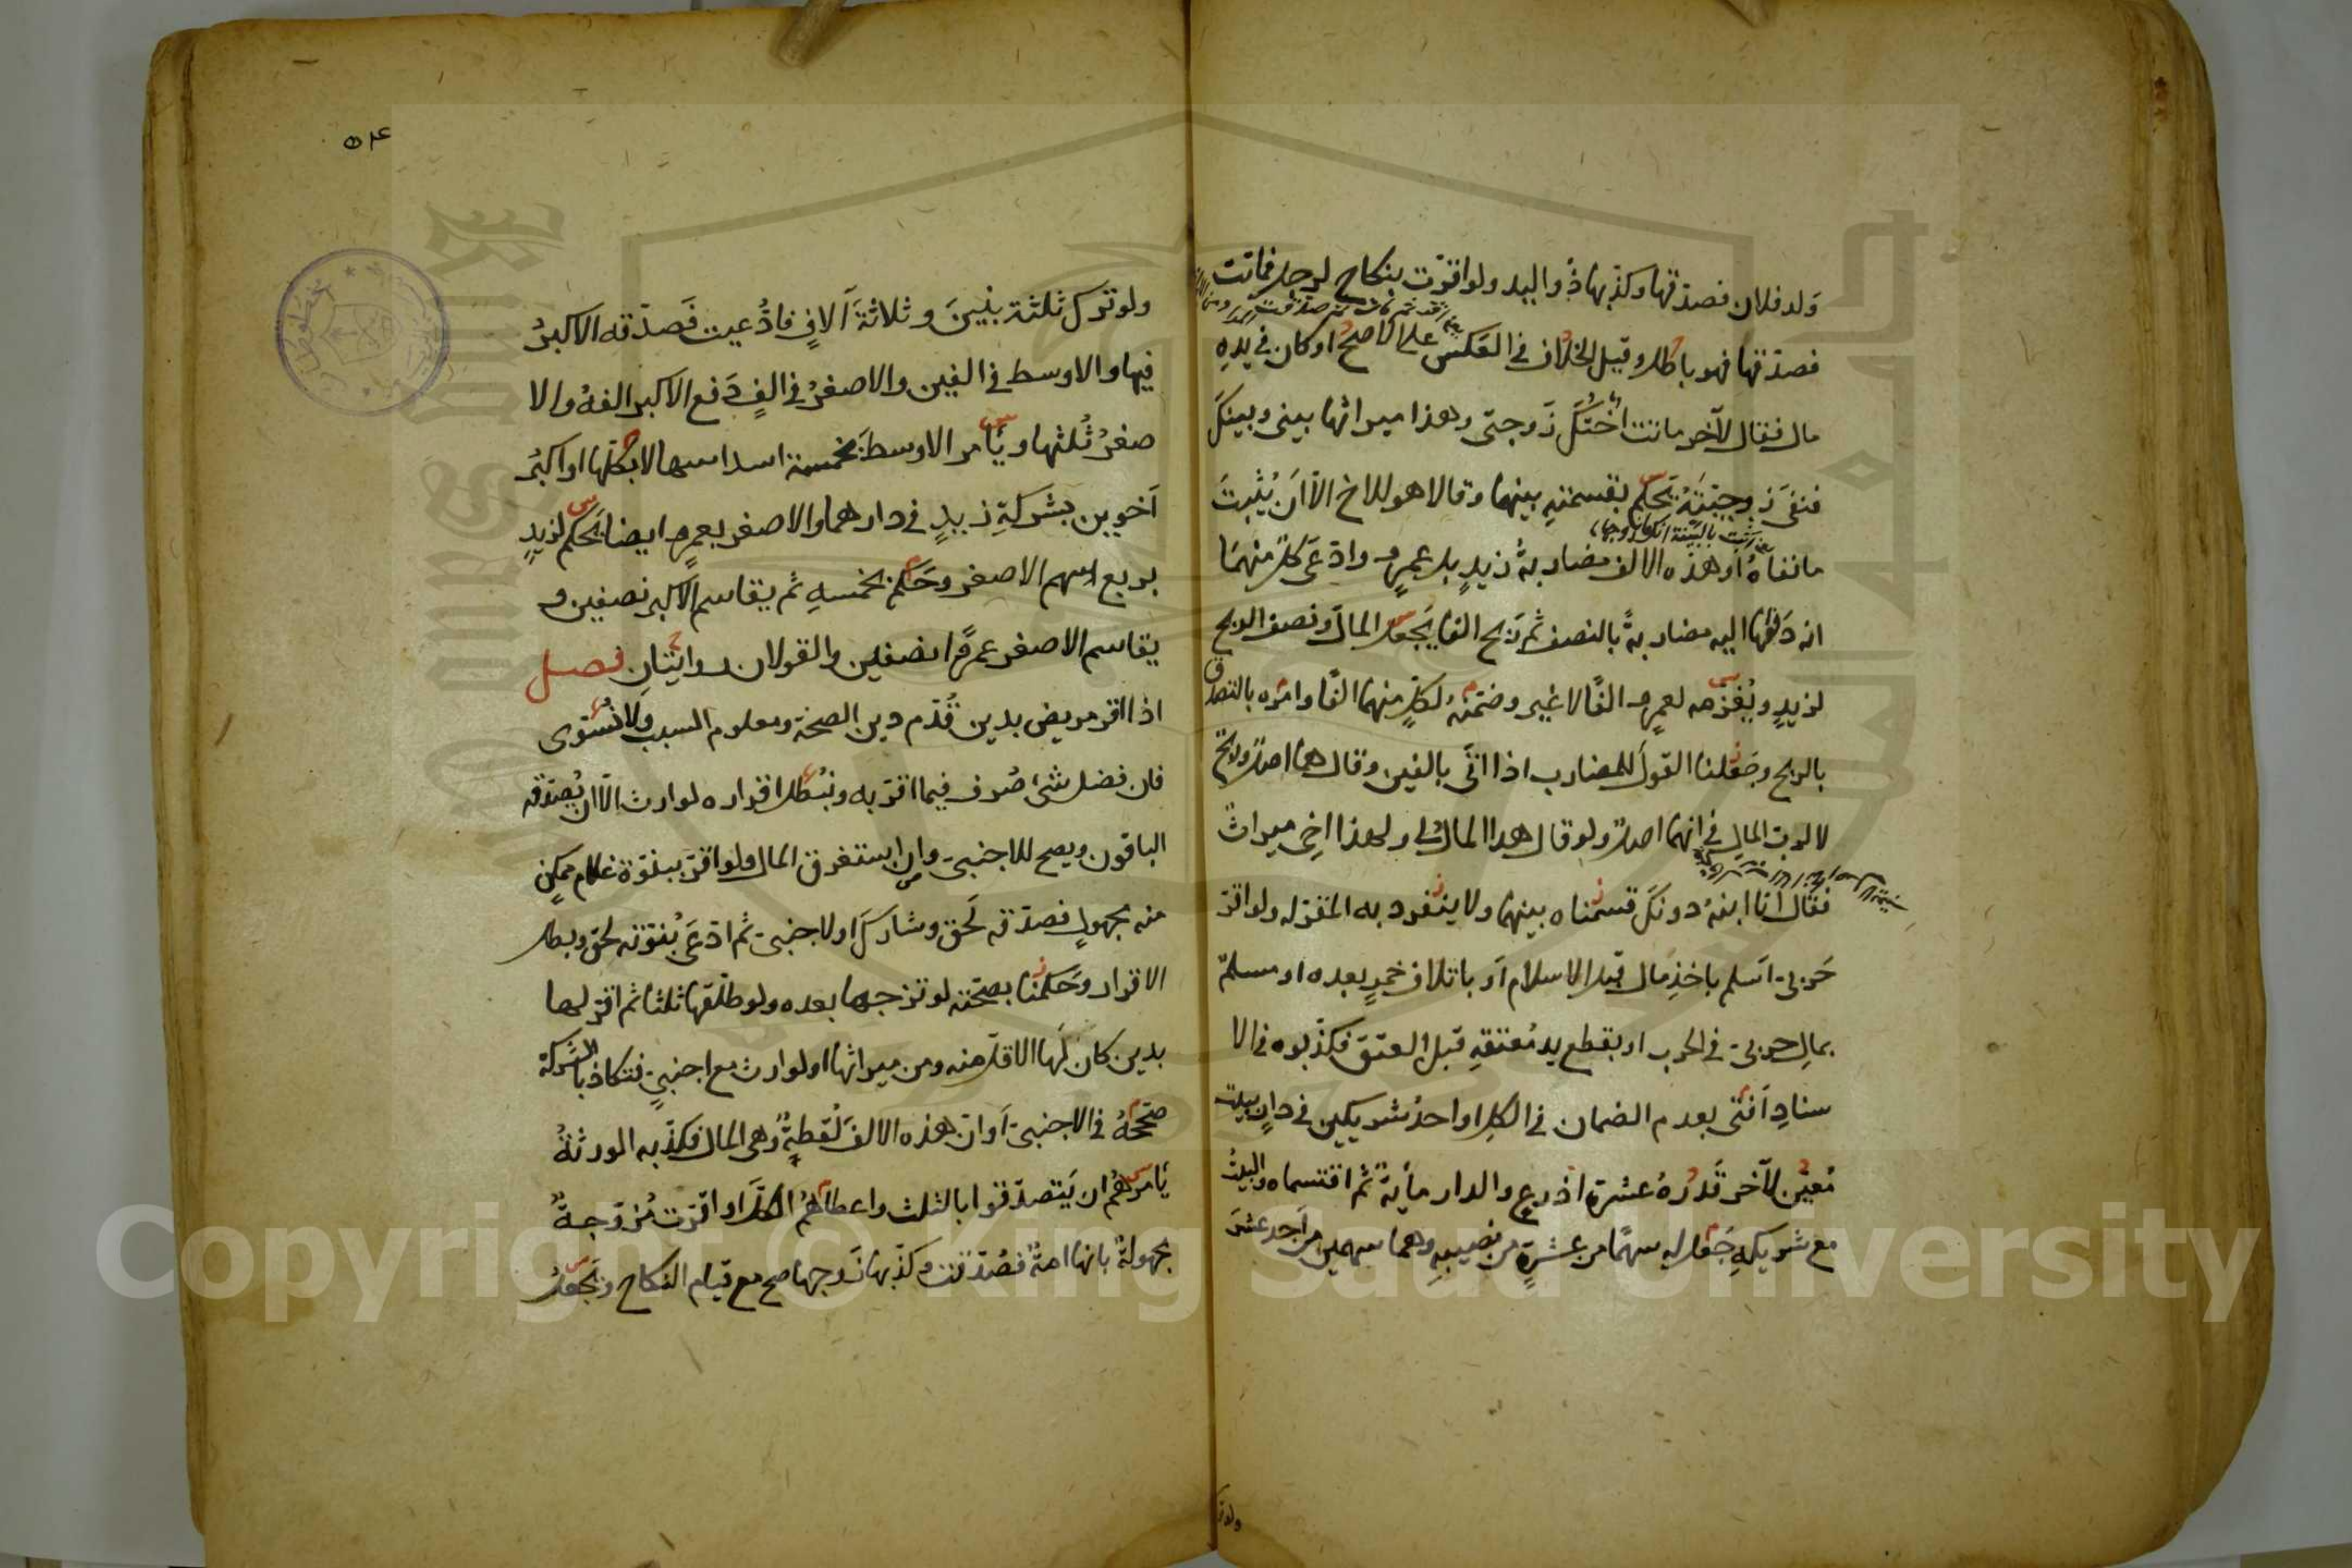 ولد فلان فصدقها وكذبها ذو اليد ولو اقرّت بنكاح لرجل فماتت
فصدقها فهو باطل وقيل الخلاف في العكس على الاصح او كان في يده
مال فقال لآخر ماتت اختك زوجتي وهذا ميراثها بيني وبينك
فنفى زوجيته يحكم بقسمته بينهما وقالا هو للاخ الا ان يثبت
ما نفاه او هذه الالف مضاربة زيد بل عمرو وادعى كل منهما
انه دفعها اليه مضاربة بالنصف ثم ربح الفا يجعل المال ونصف الربح
لزيد ويغرمه لعمرو الفا لا غير وضمنه لكل منهما الفا وامره بالتصدق
بالربح وجعلنا القول للمضارب اذا اتى بالفين وقال هما اصل وربح
لا لرب المال في انهما اصل ولو قال هذا المال لي ولهذا اخي ميراث
فقال انا ابنه دونك قسمناه بينهما ولا ينفرد به المقر له ولو اقر
حربي اسلم باخذ مال قبل الاسلام او باتلاف خمر بعده او مسلم
بمال حربي في الحرب او بقطع يد معتقه قبل العتق فكذبوه في الا
سناد افتى بعدم الضمان في الكل او احد شريكين في دار ببيت
معين لآخر قدره عشرة اذرع والدار مأية ثم اقتسماه والبيت
مع شريكه جعل له سهما من عشرة من نصيبه وهما سهمين من احد عشر
ولو تر
٥٤
ولو ترك ثلثة بنين وثلاثة آلاف فادعيت فصدقه الاكبر
فيها والاوسط في الفين والاصغر في الف دفع الاكبر الفه والا
صغر ثلثها ويأمر الاوسط بخمسة اسداسها لا بكلها او اكبر
اخوين بشركة زيد في دارهما والاصغر بعمرو ايضا يحكم لزيد
بربع اسهم الاصغر وحكم بخمسه ثم يقاسم الاكبر نصفين و
يقاسم الاصغر عمرا نصفين والقولان روايتان فصل
اذا اقر مريض بدين قدم دين الصحة ومعلوم السبب ولا نسوى
فان فضل شئ صرف فيما اقر به ونبطل اقراره لوارث الا ان يصدقه
الباقون ويصح للاجنبي وان استغرق المال ولو اقر ببنوة غلام ممكن
منه مجهول فصدقه لحق وشارك او لاجنبي ثم ادعى بنوته لحق وبطل
الاقرار وحكمنا بصحته لو تزوجها بعده ولو طلقها ثلثا ثم اقر لها
بدين كان لها الاقل منه ومن ميراثها او لوارث مع اجنبي فتكاذبا الشركة
صححه في الاجنبي او ان هذه الالف لقطة وهي المال فكذبه الورثة
يأمرهم ان يتصدقوا بالثلث واعطاهم الكل او اقرت مزوجة
مجهولة بانها امة فصدقت وكذبها زوجها صح مع قيام النكاح ونجعل